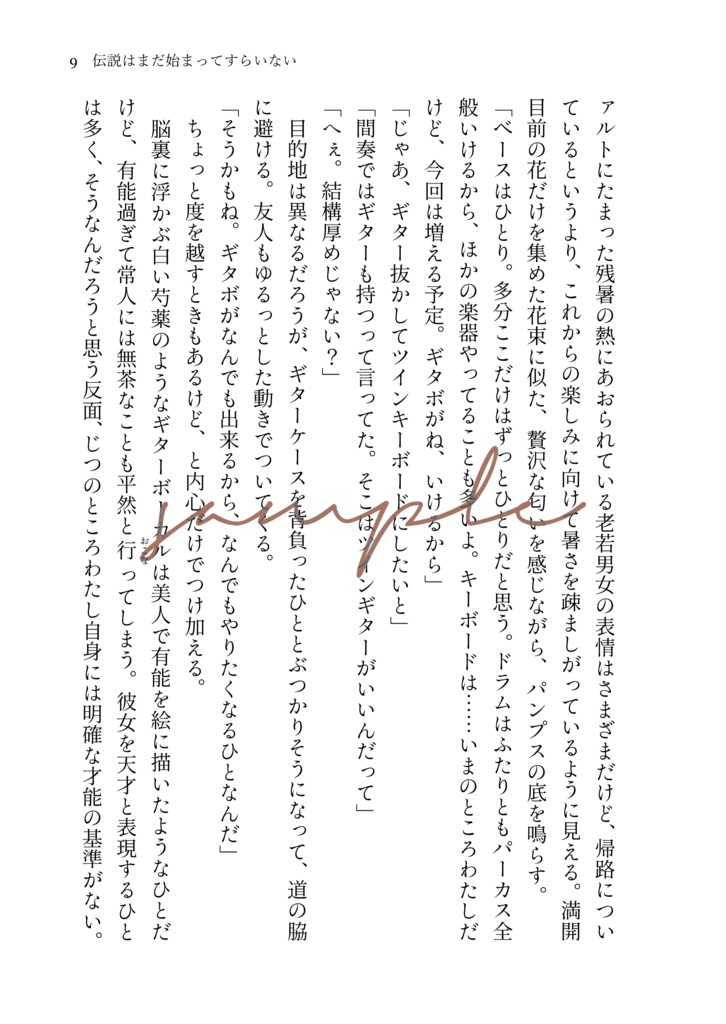 9 伝説はまだ始まってすらいない
ァルトにたまった残暑の熱にあおられている老若男女の表情はさまざまだけど、帰路につい
ているというより、これからの楽しみに向けて暑さを疎ましがっているように見える。満開
目前の花だけを集めた花束に似た、贅沢な匂いを感じながら、パンプスの底を鳴らす。
「ベースはひとり。多分ここだけはずっとひとりだと思う。ドラムはふたりともパーカス全
般いけるから、ほかの楽器やってることも多いよ。キーボードは……いまのところわたしだ
けど、今回は増える予定。ギタボがね、いけるから」
「じゃあ、ギター抜かしてツインキーボードにしたいと」
「間奏ではギターも持つって言ってた。そこはツインギターがいいんだって」
「へぇ。結構厚めじゃない？」
目的地は異なるだろうが、ギターケースを背負ったひととぶつかりそうになって、道の脇
に避ける。友人もゆるっとした動きでついてくる。
「そうかもね。ギタボがなんでも出来るから、なんでもやりたくなるひとなんだ」
ちょっと度を越すときもあるけど、と内心だけでつけ加える。
脳裏に浮かぶ白い芍薬のようなギターボーカルは美人で有能を絵に描いたようなひとだ
けど、有能過ぎて常人には無茶なことも平然と行ってしまう。彼女を天才と表現するひと
おこな
は多く、そうなんだろうと思う反面、じつのところわたし自身には明確な才能の基準がない。
sample